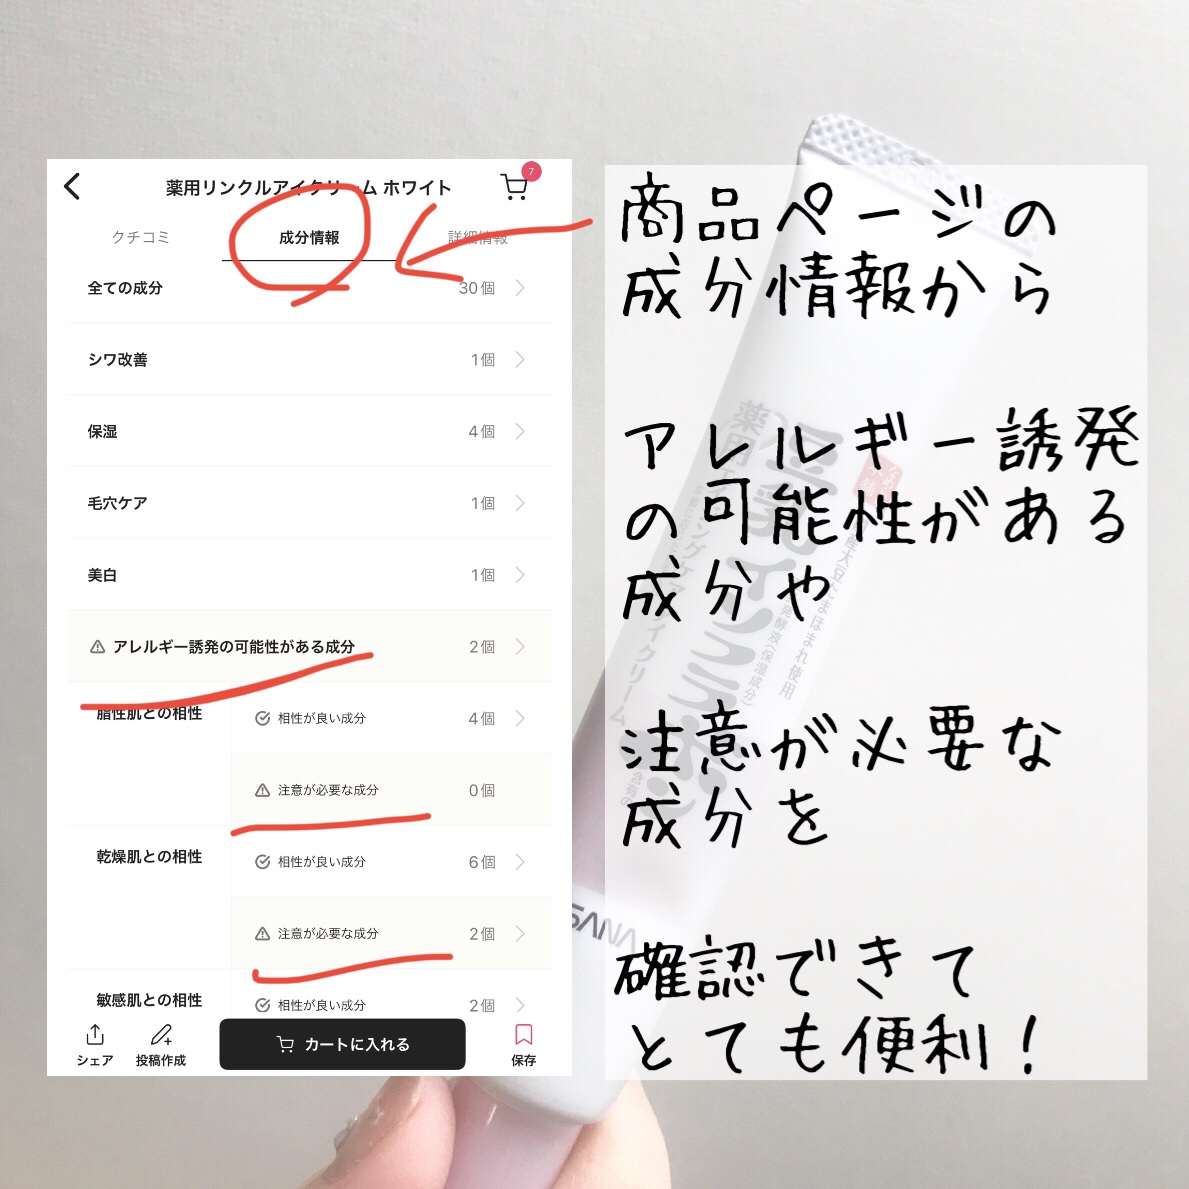 薬用リンクルアイクリーム ホワイト
7
クチコミ
成分情報
詳細情報
全ての成分 30個
シワ改善 1個
保湿 4個
毛穴ケア 1個
美白 1個
アレルギー誘発の可能性がある成分 2個
脂性肌との相性
相性が良い成分 4個
注意が必要な成分 0個
乾燥肌との相性
相性が良い成分 6個
注意が必要な成分 2個
敏感肌との相性
相性が良い成分 2個
シェア
投稿作成
カートに入れる
保存
商品ページの
成分情報から
アレルギー誘発
の可能性がある
成分や
注意が必要な
成分を
確認できて
とても便利！
SANA